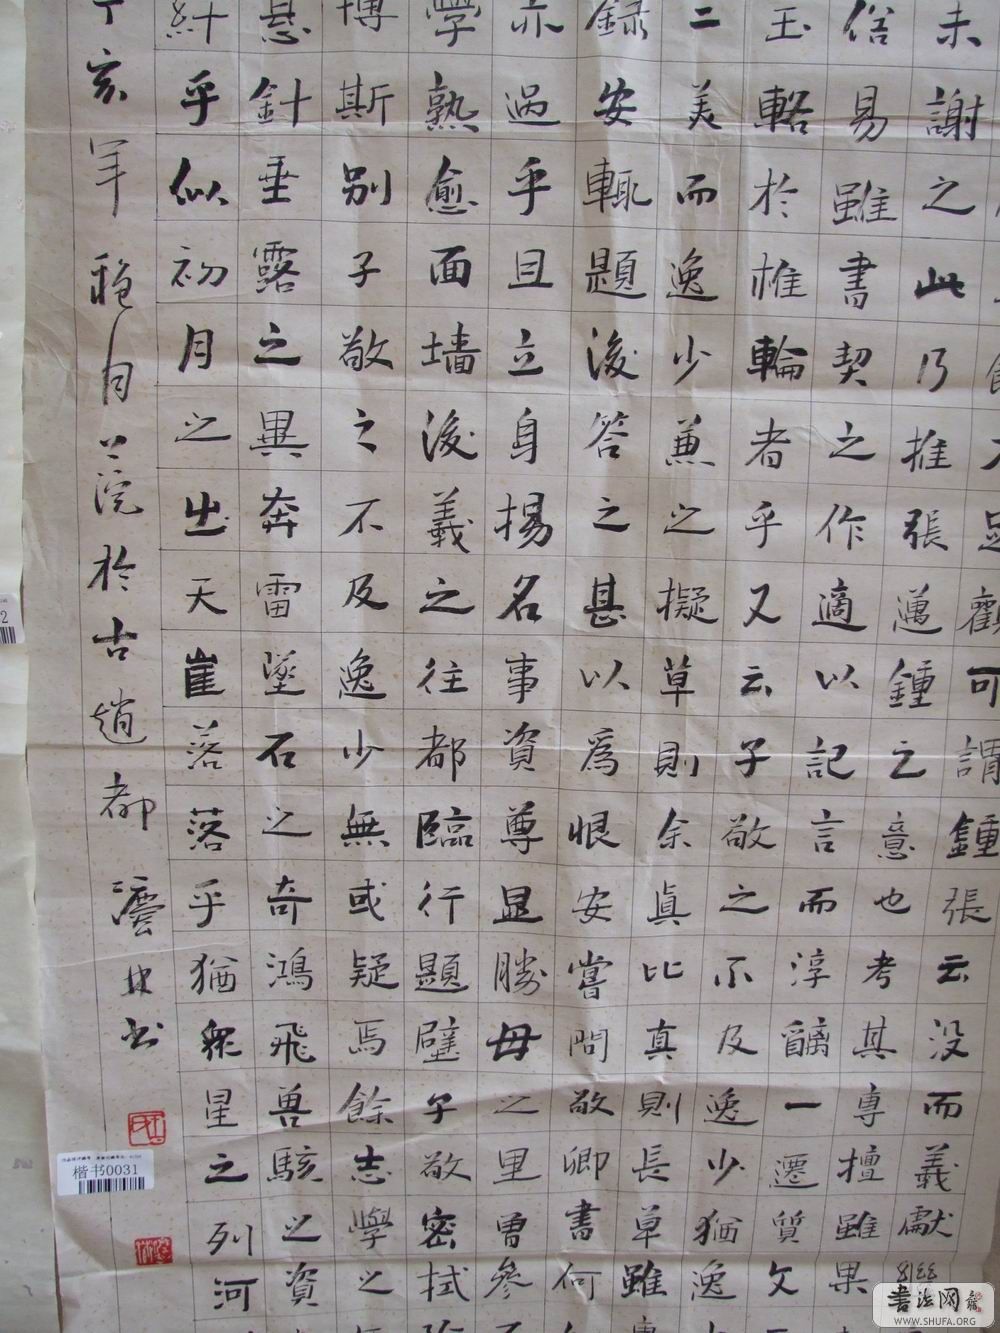 足觀可謂鍾張云没而義獻
未謝之此乃推張邁鍾之意也考其專擅雖果
信易雖書契之作適以記言而淳醨一遷質文
玉輅於椎輪者乎又云子敬之不及逸少猶逸
二美而逸少兼之擬草則余真比真則長草雖
録安輒題後答之甚以爲恨安嘗問敬卿書何
亦過乎且立身揚名事資尊显勝母之里曾參
學熟愈面墙後義之往都臨行題壁子敬密拭
博斯别子敬之不及逸少無或疑焉餘志學之
懸針垂露之異奔雷墜石之奇鴻飛兽駭之資
纤乎似初月之出天崖落落乎猶眾星之列河
丁亥年龝月上浣於古趙都澐林书
楷书0031
書法网
WWW.SHUFA.ORG